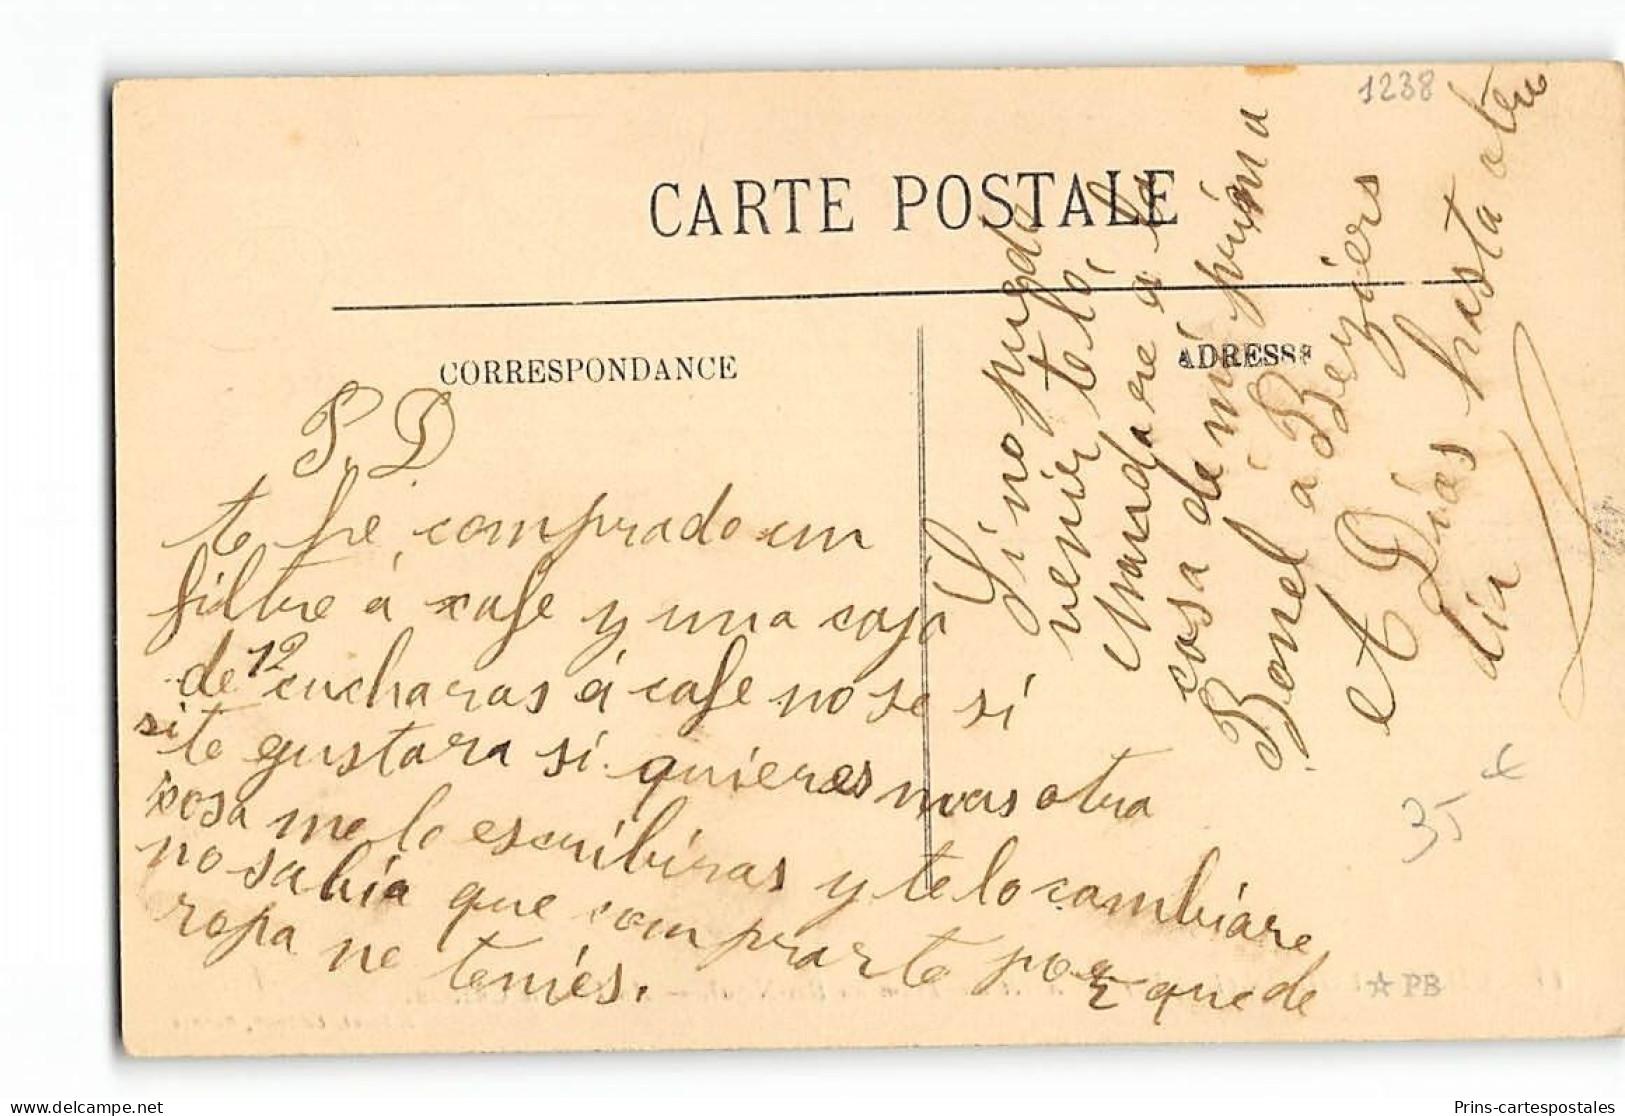 1238
CARTE POSTALE
CORRESPONDANCE
ADRESSE
P. D.
te he comprado un
filtre á cafe y una caja
de 12 cucharas á cafe no se si
si te gustara si quieres mas otra
cosa me lo escribiras y te lo cambiare
no sabia que comprarte por que de
ropa ne teniés.
Si no puedo
venir te lo
Mandare a la
casa de mi prima
Bonel á Beziers
et Dios hasta otru
dia
35 €
☆ PB
Prins-cartespostales